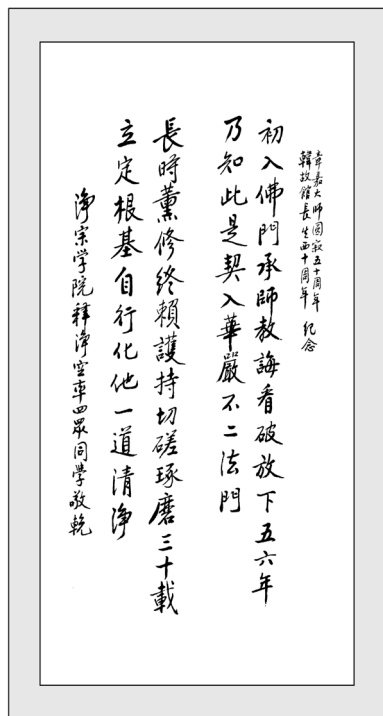 章嘉大師圓寂五十周年
韓故館長生西十周年 紀念
初入佛門承師教誨看破放下五六年
乃知此是契入華嚴不二法門
長時薰修終賴護持切磋琢磨三十載
立定根基自行化他一道清淨
淨宗学院釋淨空率四眾同學敬輓